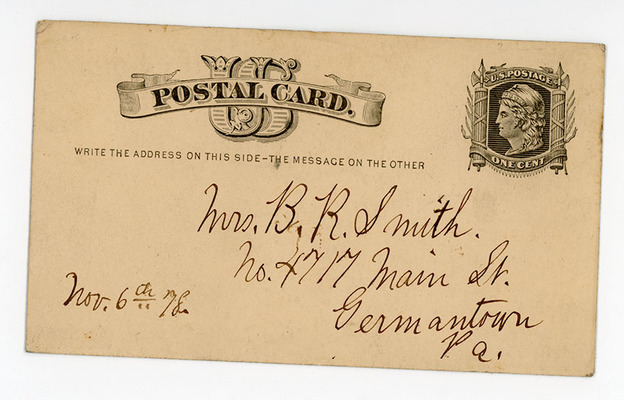 US
POSTAL CARD.
U.S. POSTAGE
ONE CENT
WRITE THE ADDRESS ON THIS SIDE–THE MESSAGE ON THE OTHER
Mrs. B. R. Smith.
No. 4717 Main St.
Germantown
Pa.
Nov. 6th 78.